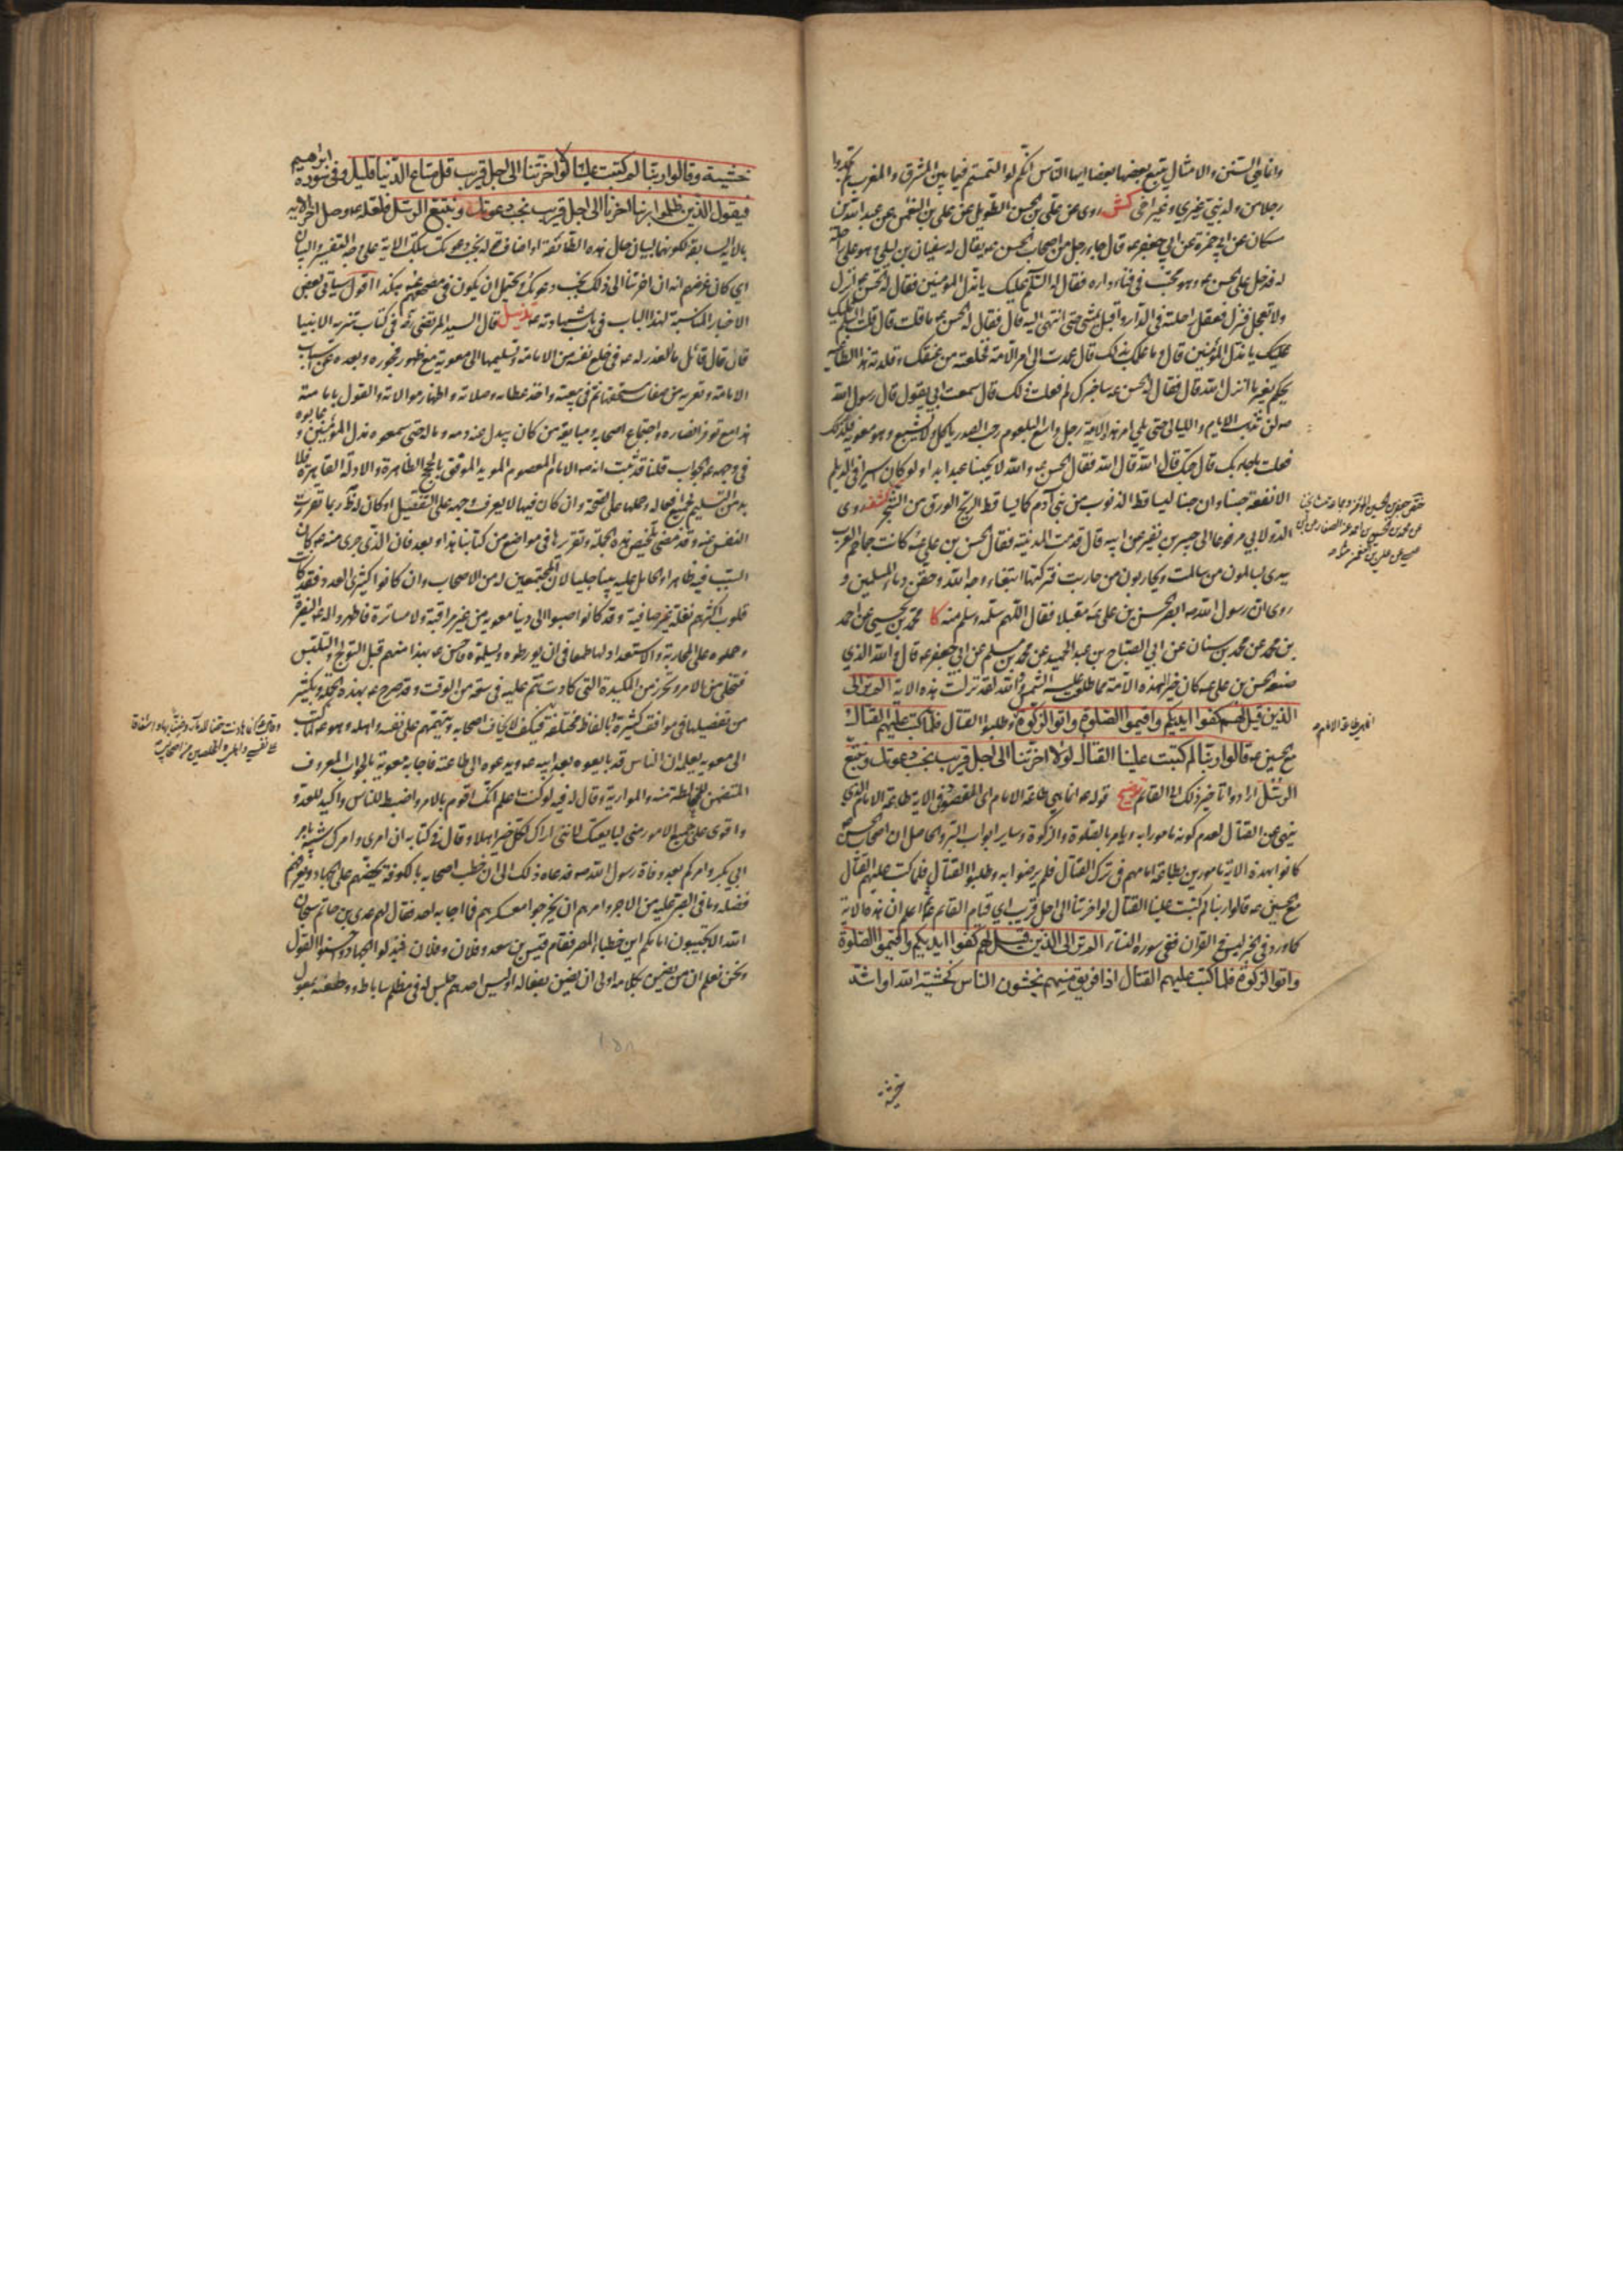 وانما هي السنن والامثال يتبع بعضها بعضا ايها الناس انكم لو التمستم فيما بين المشرق والمغرب لم تجدوا
رجلا من ولد نبي غيري وغير اخي كش روى عن علي بن الحسن الطويل عن علي بن النعمن عن عبد الله بن
مسكان عن ابي حمزة عن ابي جعفر ع قال جاء رجل من اصحاب الحسن ع يقال له سفيان بن ليلى وهو على راحلة
له فدخل على الحسن ع وهو محتب في فناء داره فقال له السلم عليك يا مذل المؤمنين فقال له الحسن ع انزل
ولا تعجل فنزل فعقل راحلته في الدار واقبل يمشي حتى انتهى اليه قال فقال له الحسن ع ما قلت قال قلت السلم عليك
عليك يا مذل المؤمنين قال وما علمك بذلك قال عمدت الى امر الامة فخلعته من عنقك وقلدته هذا الطاغية
يحكم بغير ما انزل الله قال فقال له الحسن ع ساخبرك لم فعلت ذلك قال سمعت ابي يقول قال رسول الله
ص لن تذهب الايام والليالي حتى يلي امر هذه الامة رجل واسع البلعوم رحب الصدر ياكل ولا يشبع وهو معوية فلذلك
فعلت ما جاء بك قال حبك قال الله قال الله فقال الحسن ع والله لا يحبنا عبد ابدا ولو كان اسيرا في الديلم
الا نفعه حبنا وان حبنا ليساقط الذنوب من بني آدم كما يساقط الريح الورق من الشجر كشف روى
الدولابي مرفوعا الى جبير بن نفير عن ابيه قال قدمت المدينة فقال الحسن بن علي ع كانت جماجم العرب
بيدي يسالمون من سالمت ويحاربون من حاربت فتركتها ابتغاء وجه الله وحقن دماء المسلمين و
روى ان رسول الله ص ابصر الحسن بن علي ع مقبلا فقال اللهم سلمه وسلم منه كا محمد بن يحيى عن احمد
بن محمد عن محمد بن سنان عن ابي الصباح بن عبد الحميد عن محمد بن مسلم عن ابي جعفر ع قال والله الذي
صنعه الحسن بن علي ع كان خيرا لهذه الامة مما طلعت عليه الشمس والله لقد نزلت هذه الاية الم تر الى
الذين قيل لهم كفوا ايديكم واقيموا الصلوة واتوا الزكوة وطلبوا القتال فلما كتب عليهم القتال
مع الحسين ع قالوا ربنا لم كتبت علينا القتال لولا اخرتنا الى اجل قريب نجب دعوتك ونتبع
الرسل ارادوا تاخير ذلك الى القائم توضيح قوله ع انما هي طاعة الامام اي المقصود في الاية طاعة الامام الذي
ينهى عن القتال لعدم كونه مامورا به ويامر بالصلوة والزكوة وساير ابواب البر والحاصل ان اصحاب الحسن ع
كانوا بهذه الاية مامورين بطاعة امامهم في ترك القتال فلم يرضوا به وطلبوا القتال فلما كتب عليهم القتال
مع الحسين ع قالوا ربنا لم كتبت علينا القتال لولا اخرتنا الى اجل قريب اي قيام القائم ع ثم اعلم ان هذه الاية
كما ورد في الخبر ليس في القران ففي سورة النساء الم تر الى الذين قيل لهم كفوا ايديكم واقيموا الصلوة
واتوا الزكوة فلما كتب عليهم القتال اذا فريق منهم يخشون الناس كخشية الله او اشد
خشية
انما هي طاعة الامام
خشية وقالوا ربنا لم كتبت علينا القتال لولا اخرتنا الى اجل قريب قل متاع الدنيا قليل وفي سورة ابراهيم
فيقول الذين ظلموا ربنا اخرنا الى اجل قريب نجب دعوتك ونتبع الرسل فلعله ع وصل اخر الاية
بالاية السابقة لكونهما لبيان حال هذه الطائفة او اضاف قوله نجب دعوتك بتلك الاية على وجه التفسير والبيان
اي كان غرضهم انه ان اخرتنا الى ذلك نجب دعوتك ويحتمل ان يكون في مصحفهم ع هكذا اقول سياتي بعض
الاخبار المناسبة لهذا الباب في باب شهادته ع تذييل قال السيد المرتضى ره في كتاب تنزيه الانبيا
فان قال قائل ما العذر له ع في خلع نفسه من الامامة وتسليمها الى معوية مع ظهور فجوره وبعده عن اسباب
الامامة وتعريه من صفات مستحقها ثم في بيعته واخذ عطائه وصلاته واظهار موالاته والقول بامامته
هذا مع توفر انصاره واجتماع اصحابه ومبايعة من كان يبذل عنه دمه وماله حتى سموه مذل المؤمنين وعابوه
في وجهه ع الجواب قلنا قد ثبت انه ع الامام المعصوم المؤيد الموفق بالحجج الظاهرة والادلة القاهرة فلا
بد من التسليم لجميع افعاله وحملها على الصحة وان كان فيها ما لا يعرف وجهه على التفصيل او كان له ظاهر ربما نفرت
النفس عنه وقد مضى تلخيص هذه الجملة وتقريرها في مواضع من كتابنا هذا وبعد فان الذي جرى منه ع كان
السبب فيه ظاهرا والحامل عليه بينا جليا لان المجتمعين له من الاصحاب وان كانوا كثيري العدد فقد كانت
قلوب اكثرهم نغلة غير صافية وقد كانوا صبوا الى دنيا معوية من غير مراقبة ولا مساترة فاظهروا له ع النصرة
وحملوه على المحاربة والاستعداد لها طمعا في ان يورطوه ويسلموه واحس ع بهذا منهم قبل التولج والتلبس
فتخلى من الامر وتحرز من المكيدة التي كادت تتم عليه في سعة من الوقت وقد صرح ع بهذه الجملة وبكثير
من تفصيلها في مواقف كثيرة بالفاظ مختلفة فكيف لا يخاف اصحابه ويتهمهم على نفسه واهله وهو ع لما كتب
الى معوية يعلمه ان الناس قد بايعوه بعد ابيه ع ويدعوه الى طاعته فاجابه معوية بالجواب المعروف
المتضمن للمغالطة منه والمواربة وقال له فيه لو كنت اعلم انك اقوم بالامر واضبط للناس واكيد للعدو
واقوى على جميع الامور مني لبايعتك لانني اراك لكل خير اهلا وقال في كتابه ان امري وامرك شبيه بامر
ابي بكر وامركم بعد وفاة رسول الله ص فدعاه ذلك الى ان خطب اصحابه بالكوفة يحضهم على الجهاد ويعرفهم
فضله وما في الصبر عليه من الاجر وامرهم ان يخرجوا معسكرهم فما اجابه احد فقال لهم عدي بن حاتم سبحان
الله الا تجيبون امامكم اين خطباء المصر فقام قيس بن سعد وفلان وفلان فبذلوا الجهاد واحسنوا القول
ونحن نعلم ان من يضن بكلامه اولى ان يضن بفعاله اوليس احدهم جلس له في مظلم ساباط وطعنه بمعول